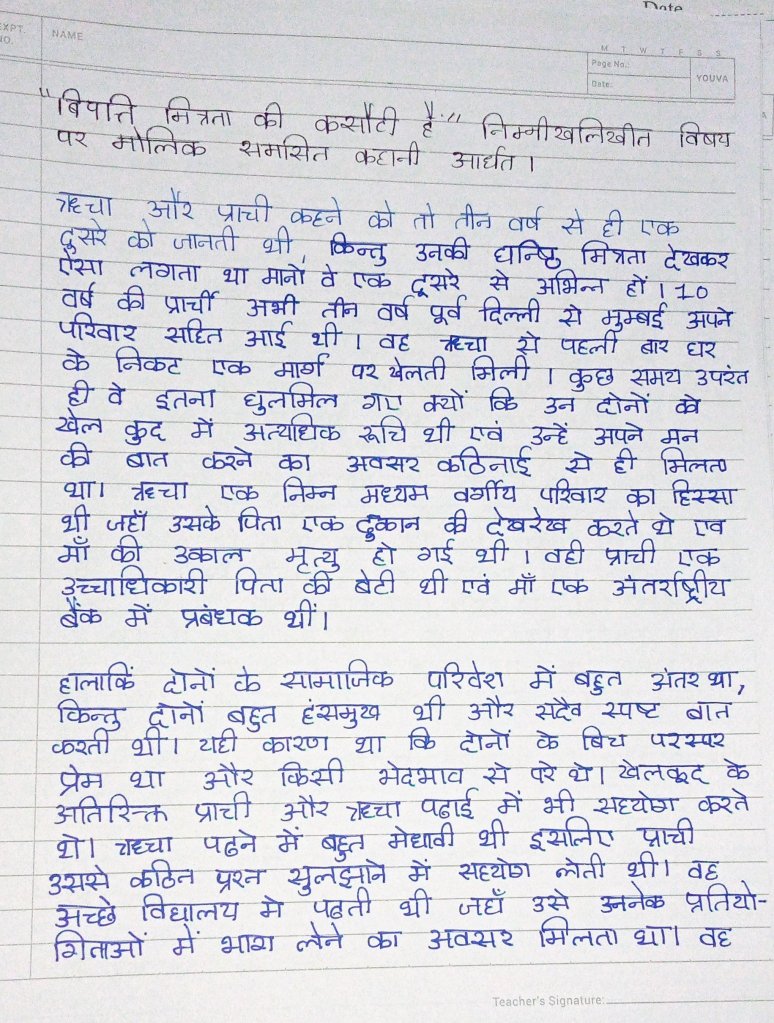 Date
EXPT.
NO.
NAME
M T W T F S S
Page No.:
Date:
YOUVA
"बिपत्ति मित्रता की कसौटी है" निम्नीखलिखीत विषय
पर मौलिक समसित कहानी आर्धत।
ऋचा और प्राची कहने को तो तीन वर्ष से ही एक
दुसरे को जानती थी, किन्तु उनकी घनिष्ठ मित्रता देखकर
ऐसा लगता था मानों वे एक दूसरे से अभिन्न हों। 10
वर्ष की प्रार्ची अभी तीन वर्ष पूर्व दिल्ली से मुम्बई अपने
परिवार सहित आई थी। वह ऋचा से पहली बार घर
के निकट एक मार्ग पर खेलती मिली। कुछ समय उपरंत
ही वे इतना घुलमिल गए क्यों कि उन दोनों को
खेल कुद में अत्यधिक रूचि थी एवं उन्हें अपने मन
की बात करने का अवसर कठिनाई से ही मिलता
था। ऋचा एक निम्न मध्यम वर्गीय परिवार का हिस्सा
थी जहाँ उसके पिता एक दुकान की देखरेख करते थे एवं
माँ की अकाल मृत्यु हो गई थी। वही प्राची एक
उच्चाधिकारी पिता की बेटी थी एवं माँ एक अंतर्राष्ट्रीय
बैंक में प्रबंधक थीं।
हालाकिं दोनों के सामाजिक परिवेश में बहुत अंतर था,
किन्तु दोनों बहुत हंसमुख थी और सदैव स्पष्ट बात
करती थीं। यही कारण था कि दोनों के बिच परस्पर
प्रेम था और किसी भेदभाव से परे थे। खेलकूद के
अतिरिक्त प्राची और ऋचा पढाई में भी सहयोग करते
थे। ऋचा पढने में बहुत मेधावी थी इसलिए प्राची
उससे कठिन प्रश्न सुलझाने में सहयोग लेती थी। वह
अच्छे विद्यालय मे पढती थी जहाँ उसे अनेक प्रतियो-
गिताओं में भाग लेने का अवसर मिलता था। वह
Teacher's Signature: